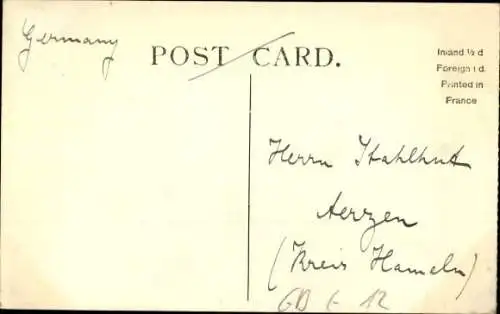 Germany
POST CARD.
Inland ½ d
Foreign 1 d.
Printed in
France
Herrn Stahlhut
Aerzen
(Kreis Hameln)
GB E 12